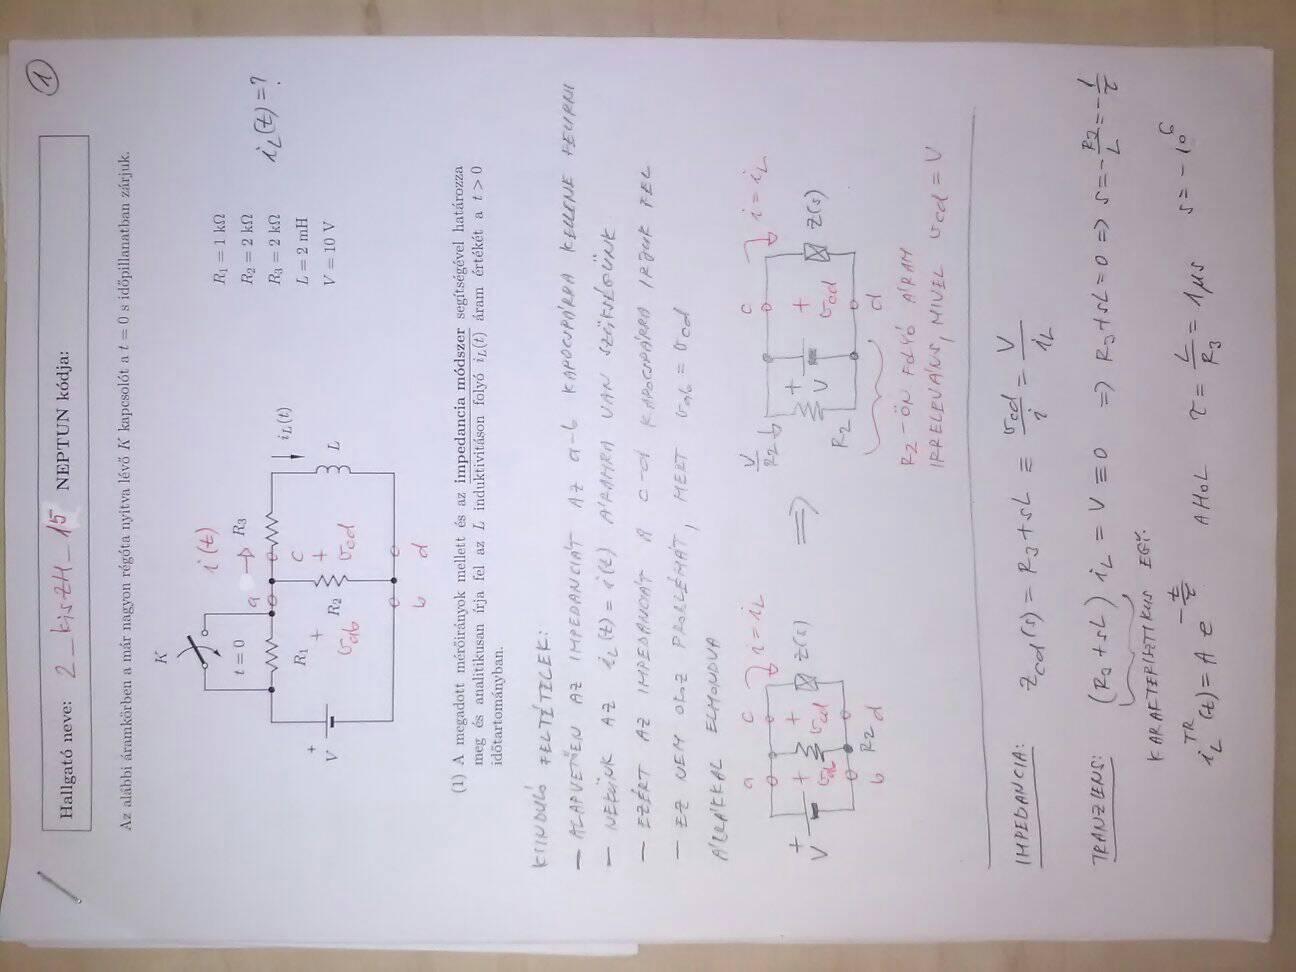 ①
Hallgató neve: 2_kisZH_15 NEPTUN kódja:
Az alábbi áramkörben a már nagyon régóta nyitva lévő K kapcsolót a t = 0 s időpillanatban zárjuk.
K
t = 0
R₁
R₂
R₃
i(t)
i_L(t)
L
V
+
a
b
c
d
+
v_ab
+
v_cd
R₁ = 1 kΩ
R₂ = 2 kΩ
R₃ = 2 kΩ
L = 2 mH
V = 10 V
i_L(t) = ?
(1) A megadott mérőirányok mellett és az impedancia módszer segítségével határozza
meg és analitikusan írja fel az L induktivitáson folyó i_L(t) áram értékét a t > 0
időtartományban.
KIINDULÓ FELTÉTELEK:
— ALAPVETŐEN AZ IMPEDANCIÁT AZ a-b KAPOCSPÁRRA KELLENE FELÍRNI
— NEKÜNK AZ i_L(t) = i(t) ÁRAMRA VAN SZÜKSÉGÜNK
— EZÉRT AZ IMPEDANCIÁT A c-d KAPOCSPÁRRA ÍRJUK FEL
— EZ NEM OKOZ PROBLÉMÁT, MERT v_ab = v_cd
ÁBRÁKKAL ELMONDVA
a c i = i_L
+ V + v_ab + v_cd Z(s)
b R2 d
⇒
V/R2 c i = i_L
R2 + V + v_cd Z(s)
d
R2-ÖN FOLYÓ ÁRAM
IRRELEVÁNS, MIVEL v_cd = V
IMPEDANCIA: Z_cd(s) = R₃ + sL ≡ v_cd/i = V/i_L
TRANZIENS: (R₃ + sL) i_L = V ≡ 0 ⇒ R₃ + sL = 0 ⇒ s = -R₃/L = -1/τ
KARAKTERISZTIKUS EGY.
i_L^TR(t) = A e^(-t/τ) AHOL τ = L/R₃ = 1 μs s = -10⁶